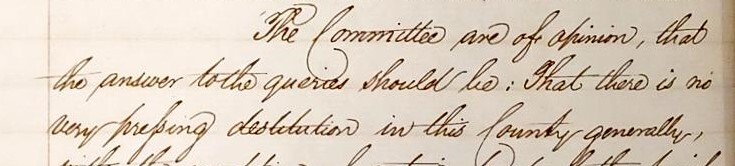 The Committee are of opinion, that
the answer to the queries should be: That there is no
very pressing destitution in this County generally,